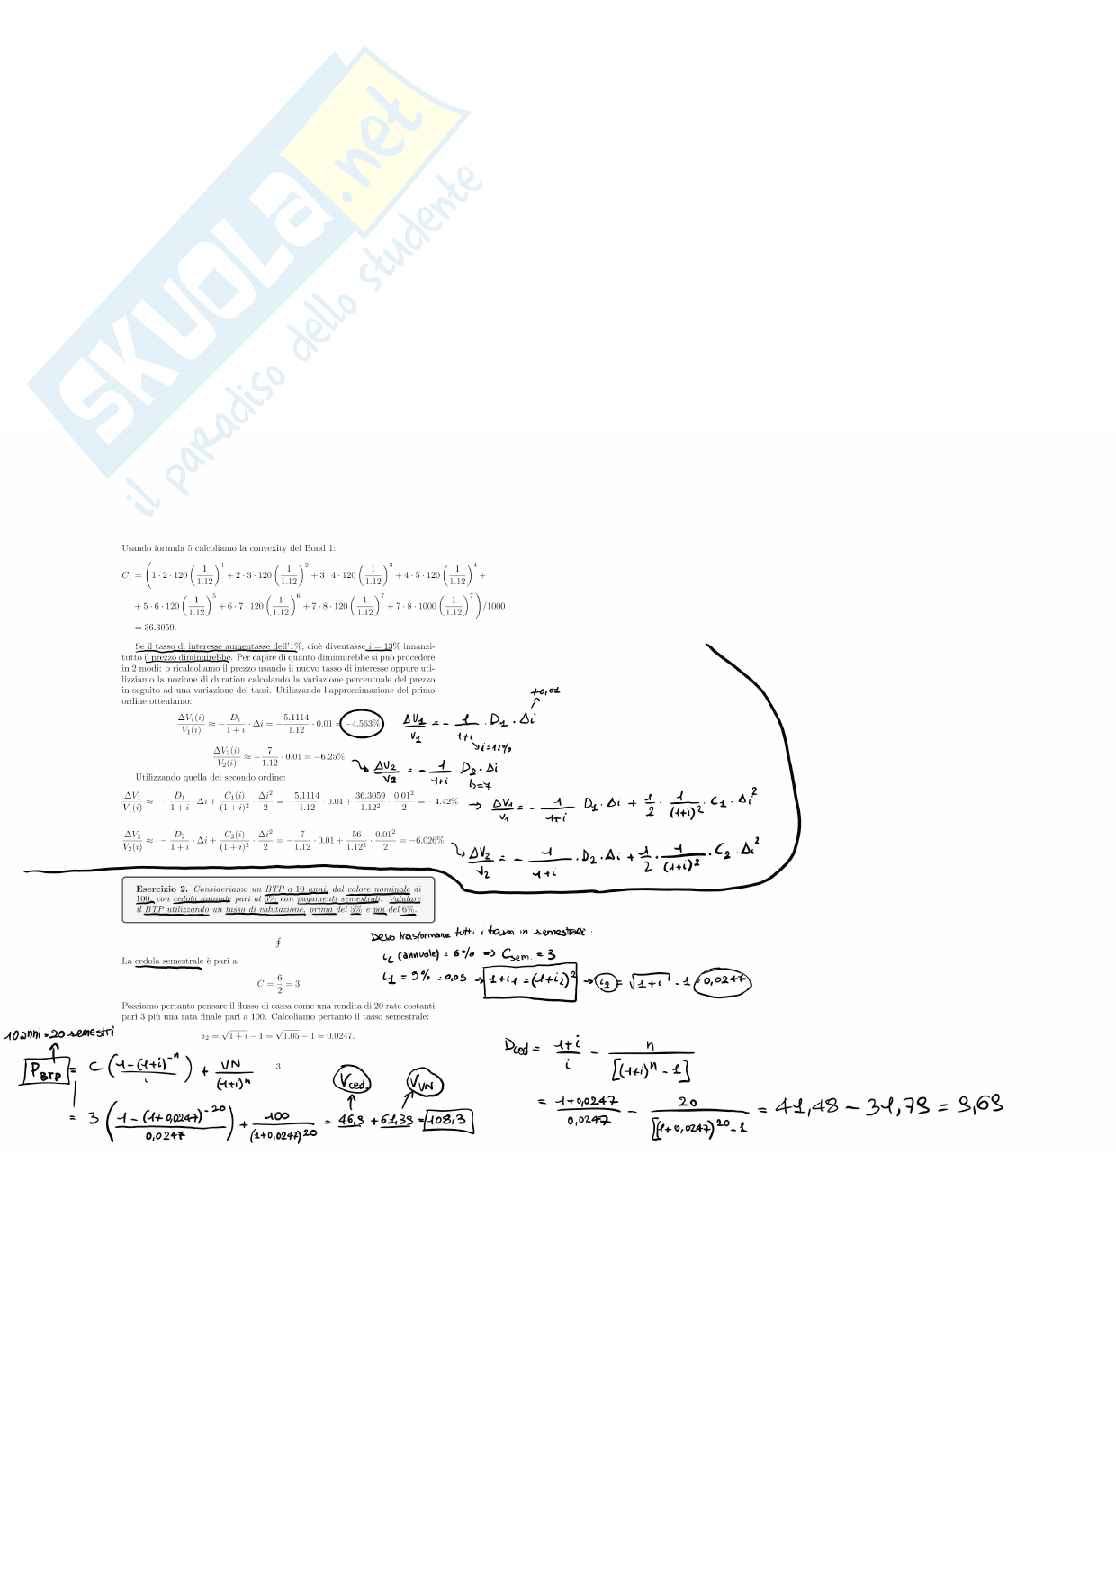 SKUOLA.net
il paradiso dello studente
Usando formula 5 calcoliamo la convexity del Bond 1:
C = (1 · 2 · 120 (1/1.12)^1 + 2 · 3 · 120 (1/1.12)^2 + 3 · 4 · 120 (1/1.12)^3 + 4 · 5 · 120 (1/1.12)^4 +
+ 5 · 6 · 120 (1/1.12)^5 + 6 · 7 · 120 (1/1.12)^6 + 7 · 8 · 120 (1/1.12)^7 + 7 · 8 · 1000 (1/1.12)^7) /1000
= 36.3059.
Se il tasso di interesse aumentasse dell'1%, cioè diventasse i = 13% innanzi-
tutto il prezzo diminuirebbe. Per capire di quanto diminuirebbe si può procedere
in 2 modi: o ricalcoliamo il prezzo usando il nuovo tasso di interesse oppure uti-
lizziamo la nozione di duration calcolando la variazione percentuale del prezzo
in seguito ad una variazione dei tassi. Utilizzando l'approssimazione del primo
ordine otteniamo:
+0,01
ΔV1(i)/V1(i) ≈ − D1/(1 + i) · Δi = − 5.1114/1.12 · 0.01 = −4.563%
ΔV1/V1 = - 1/(1+i) · D1 · Δi
i=12%
ΔV2(i)/V2(i) ≈ − 7/1.12 · 0.01 = −6.25%
ΔV2/V2 = - 1/(1+i) D2 · Δi
D=7
Utilizzando quella del secondo ordine:
ΔV1/V1(i) ≈ − D1/(1 + i) · Δi + C1(i)/(1 + i)² · Δi²/2 = − 5.1114/1.12 · 0.01 + 36.3059/1.12² · 0.01²/2 = −4.42%
→ ΔV1/V1 = - 1/(1+i) D1 · Δi + 1/2 · 1/(1+i)² · C1 · Δi²
ΔV2/V2(i) ≈ − D2/(1 + i) · Δi + C2(i)/(1 + i)² · Δi²/2 = − 7/1.12 · 0.01 + 56/1.12² · 0.01²/2 = −6.026%
ΔV2/V2 = - 1/(1+i) · D2 · Δi + 1/2 · 1/(1+i)² · C2 Δi²
Esercizio 2. Consideriamo un BTP a 10 anni, dal valore nominale di
100, con cedola annuale pari al 6% con pagamenti semestrali. Valutare
il BTP utilizzando un tasso di valutazione, prima del 5% e poi del 6%.
Devo trasformare tutti i tassi in semestrale.
La cedola semestrale è pari a
C = 6/2 = 3
(annuale) = 6% => Csem. = 3
i1 = 5% = 0,05 → 1+i1 = (1+i2)² → i2 = √1+i - 1 = 0,0247
Possiamo pertanto pensare il flusso di cassa come una rendita di 20 rate costanti
pari 3 più una rata finale pari a 100. Calcoliamo pertanto il tasso semestrale:
i2 = √1 + i − 1 = √1.05 − 1 = 0.0247.
3
10 anni = 20 semestri
PBTP = C (1-(1+i)^-n / i) + VN/(1+i)^n
Vced. VVN
= 3 (1-(1+0,0247)^-20 / 0,0247) + 100/(1+0,0247)^20 = 46,9 + 61,39 = 108,3
Dced = (1+i)/i - n/[(1+i)^n - 1]
= (1+0,0247)/0,0247 - 20/[(1+0,0247)^20 - 1] = 41,48 - 31,79 = 9,69